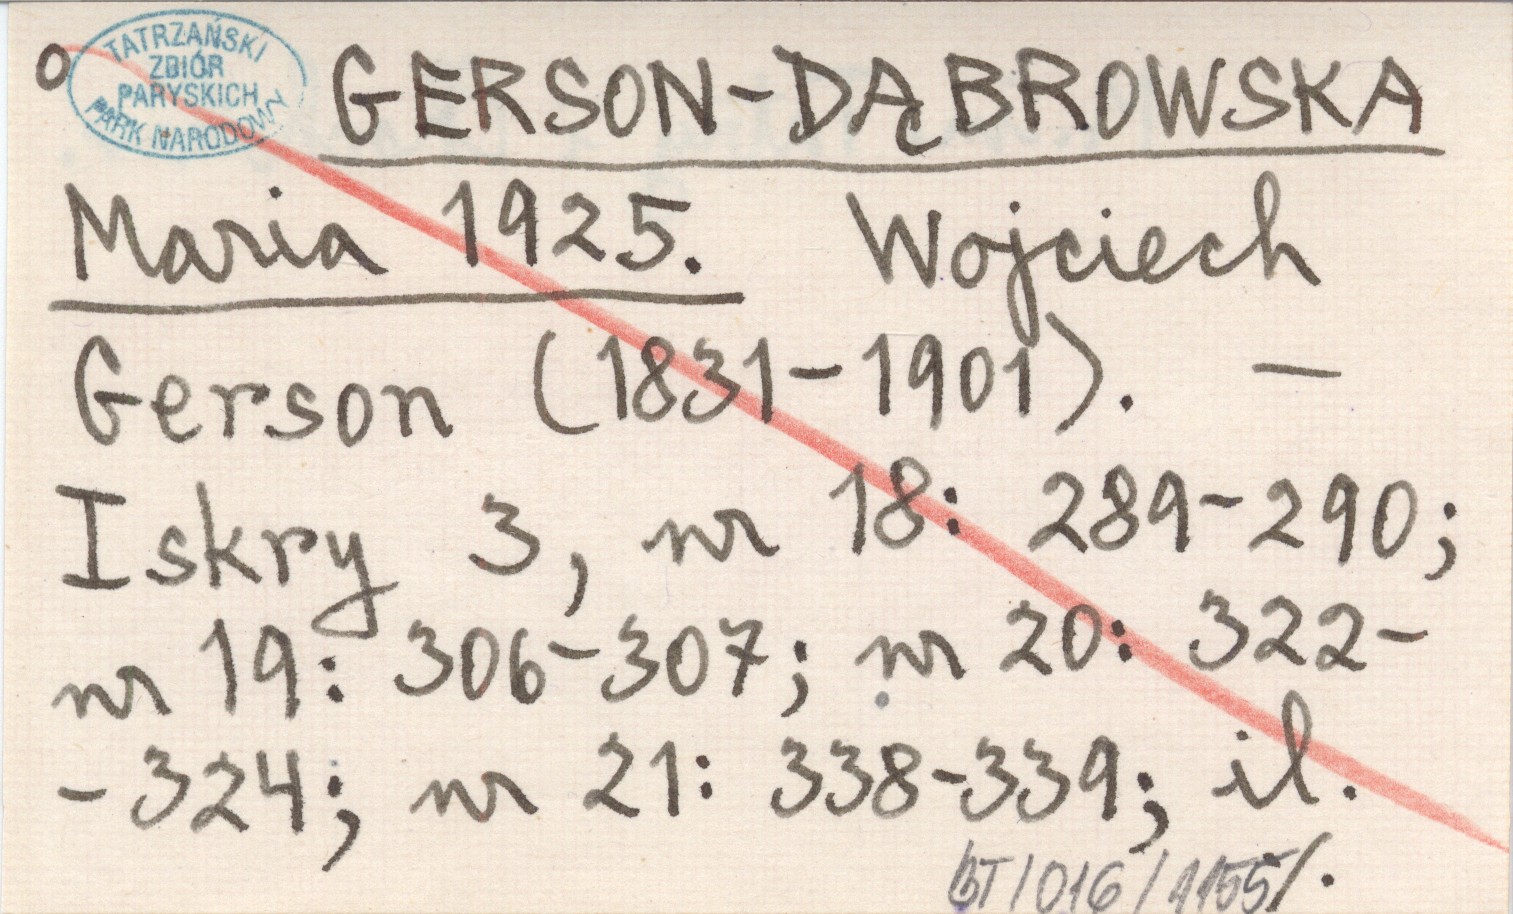 o
TATRZAŃSKI
ZBIÓR
PARYSKICH
PARK NARODOWY
GERSON-DĄBROWSKA
Maria 1925. Wojciech
Gerson (1831-1901). —
Iskry 3, nr 18: 289-290;
nr 19: 306-307; nr 20: 322-
-324; nr 21: 338-339; il.
BT/016/1155/.